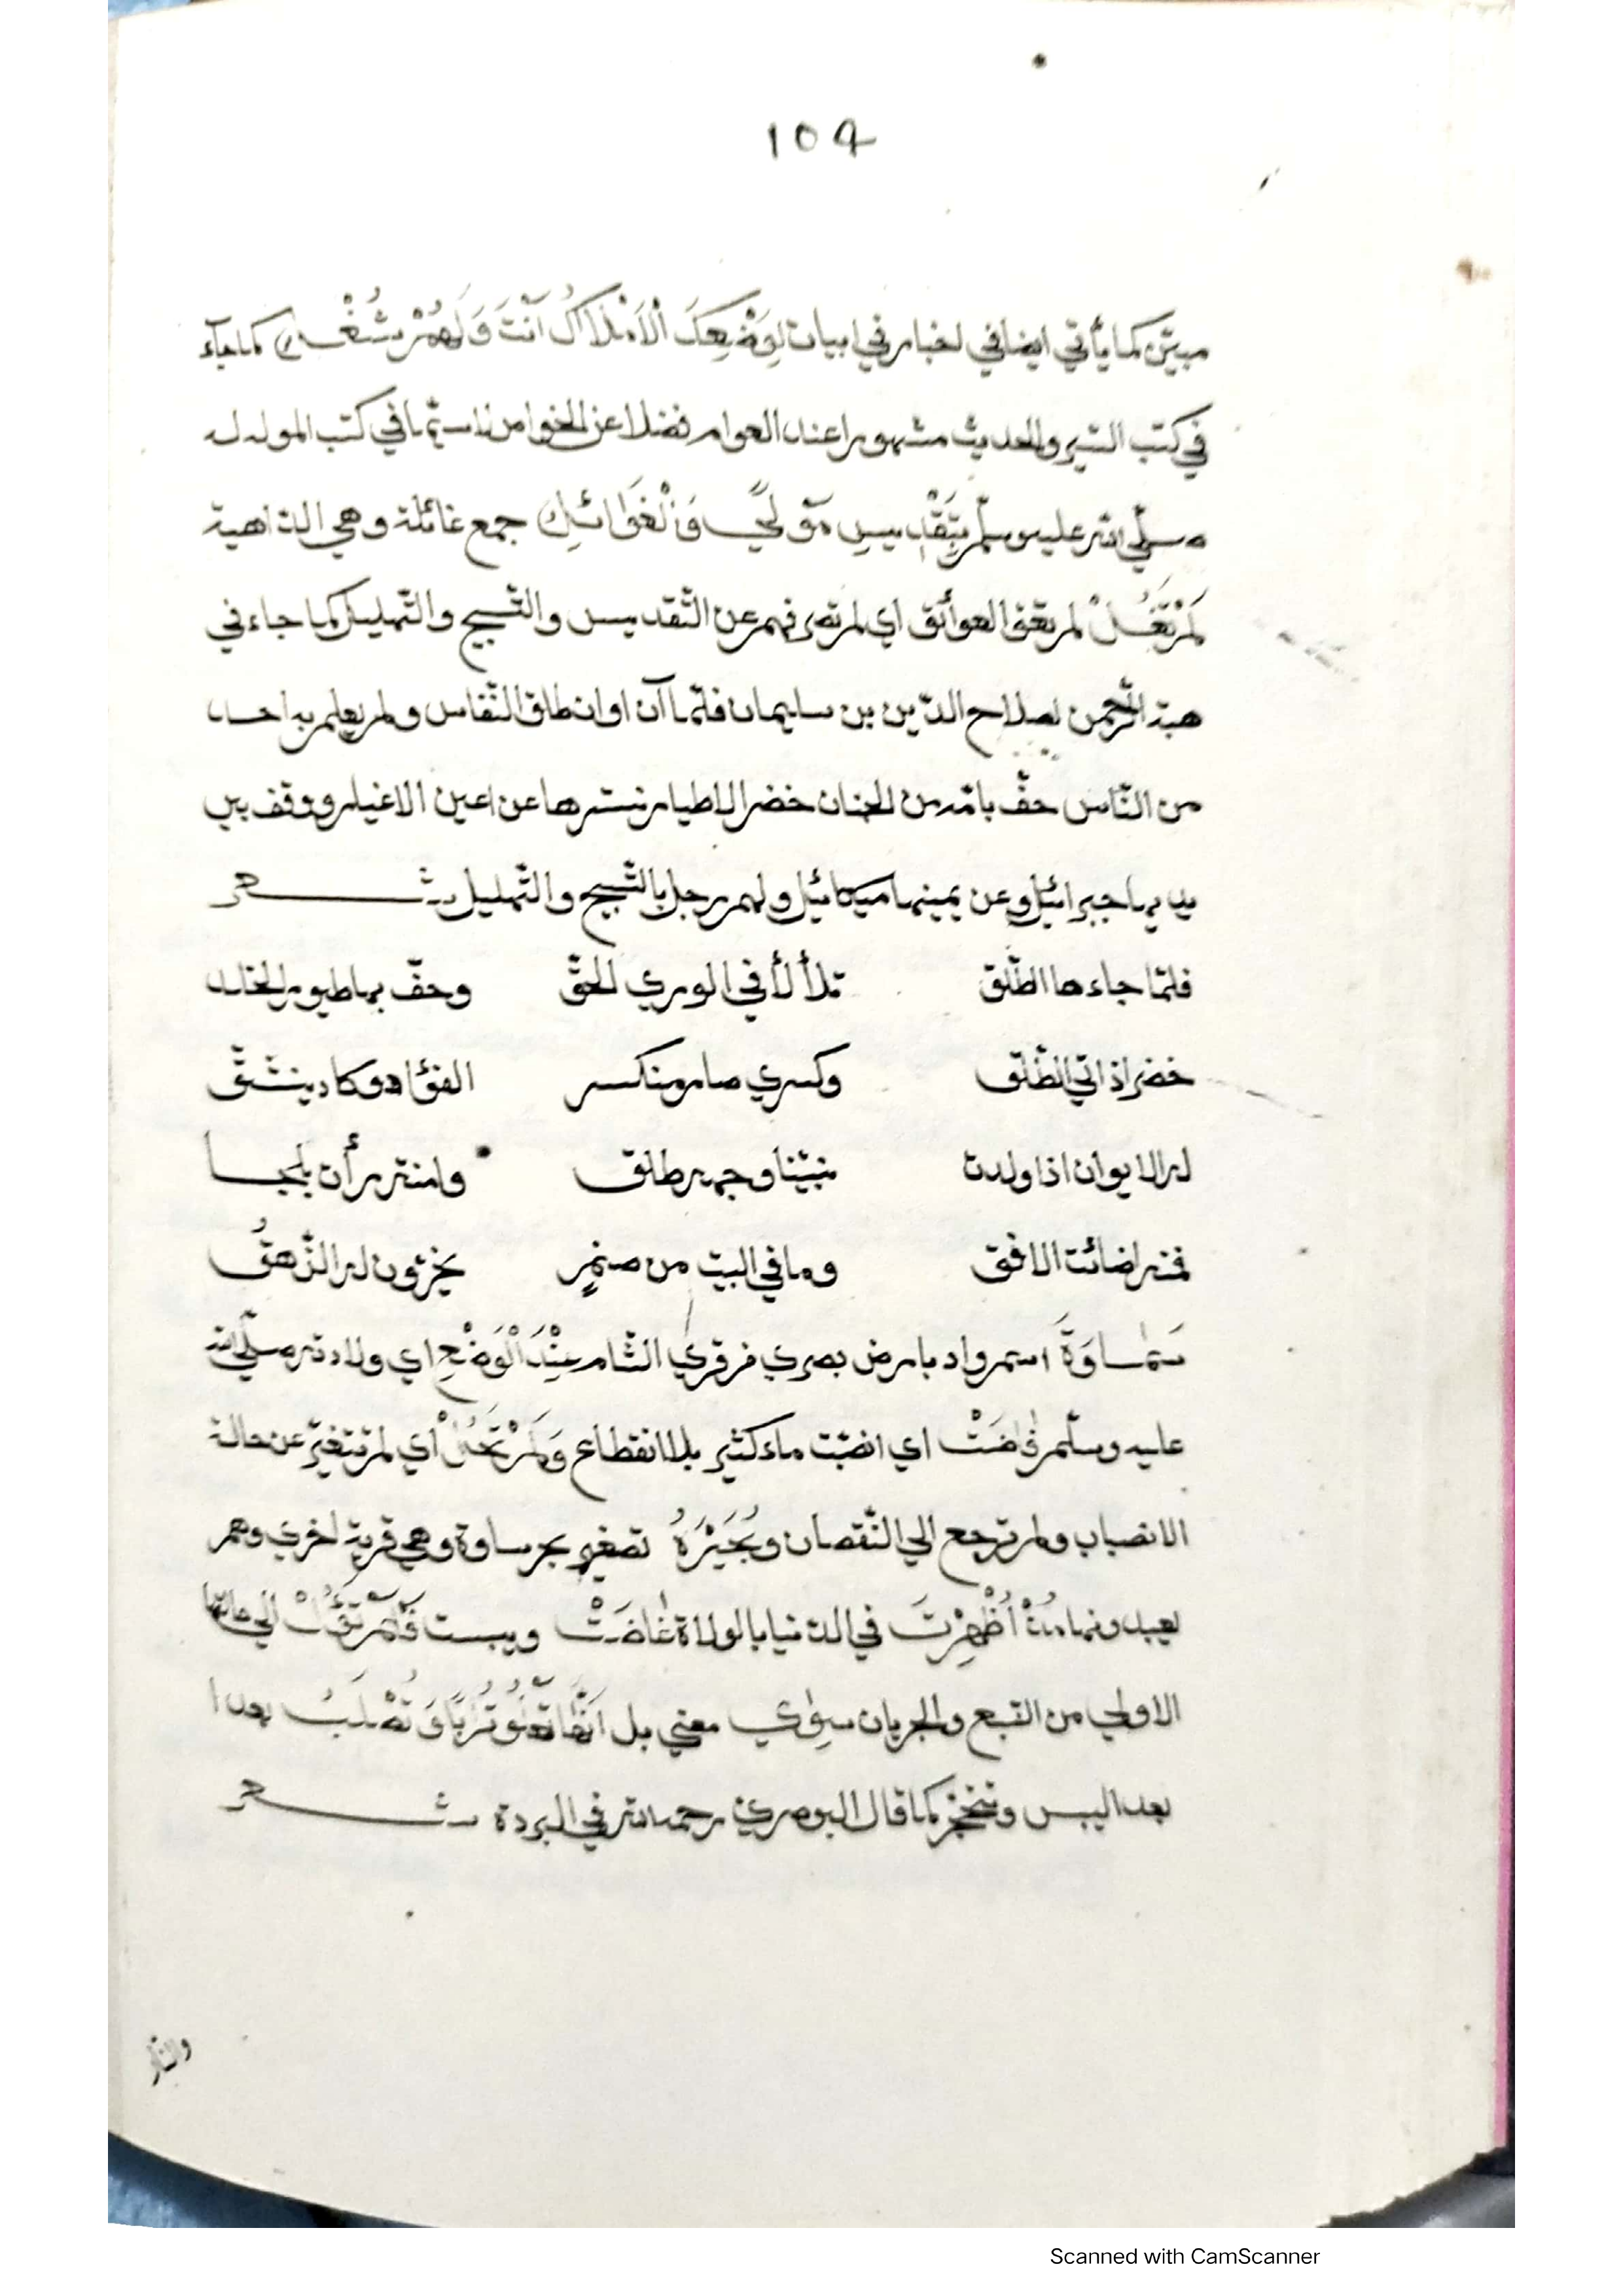 104
مبيّن كما يأتي ايضا في اخبار في ابيات لِوَضْعِكَ الْاَمْلَاكُ اَنْتَ وَلَهُمْ شُغْلٌ كما جآء
في كتب السّير والحديث مشهورا عند العوام فضلا عن الخواص لا سيّما في كتب المولد له
صلّي الله عليه وسلّم بِتَقْدِيسِ مَوْلًي وَالْغَوَائِلُ جمع غائلة وهي الدّاهية
لَمْ تَغُلْ لم تعق العوائق اي لم تصرفهم عن التّقديس والتّسبيح والتّهليل كما جاء في
هبة الرّحمن لصلاح الدّين بن سليمان فلمّا آن اوان طلق النّفاس ولم يعلم به احد
من النّاس حفّ بامّه من الجنان خضر الاطيار تسترها عن اعين الاغيار ووقف بين
يديها جبرائيل وعن يمينها ميكائيل ولهم زجل بالتّسبيح والتّهليل شعر
فلمّا جاءها الطّلق تلألأ في الوري الحقّ وحفّ بها طيور الخلد
خضر اذ اتي الطّلق وكسري صار منكسر الفؤاد وكاد ينشقّ
له الايوان اذا ولدت نبيّنا وجهه طلق وامنة رأن لجبا
فمنه اضائت الافق وما في البيت من صنم يخرّون له الزّهق
سَمَاوَةَ اسم واد بارض بصري من قري الشّام عِنْدَ الْوَضْعِ اي ولادته صلّي الله
عليه وسلّم فَاضَتْ اي انصبّت ماء كثير بلا انقطاع وَلَمْ تَحُلْ اي لم تتغيّر عن حالة
الانصباب ولم ترجع الي النّقصان وبُحَيْرَةُ تصغير بحر ساوة وهي قرية اخري وهم
يعبدونها مُذْ اُظْهِرْتَ في الدّنيا بالولادة غَاضَتْ ويبست فَلَمْ تَؤُلْ الي حالتها
الاولي من النّبع والجريان سِوٰي معني بل اَنَّهَا تَعْلُو تُرَابًا وَتَصْلَبُ بعد ا
بعد اليبس وتتحجّر كما قال البوصري رحمه الله في البردة شعر
والنّار
Scanned with CamScanner